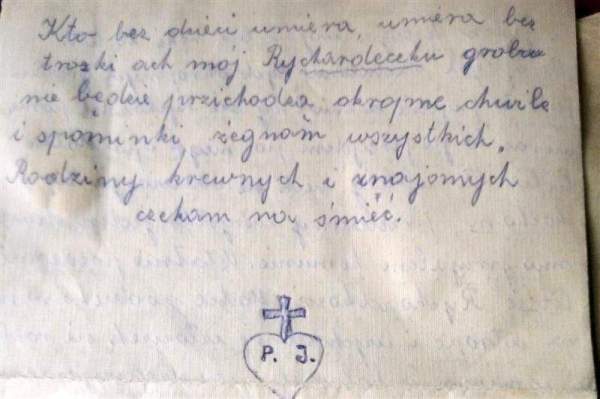 Kto bez dzieci umiera, umiera bez
troski ach mój Rychardeczku grobu
nie będzie przichodza okropne chwile
i spominki żegnam wszystkich.
Rodziny krewnych i znajomych
czekam na śmierć.
P. J.